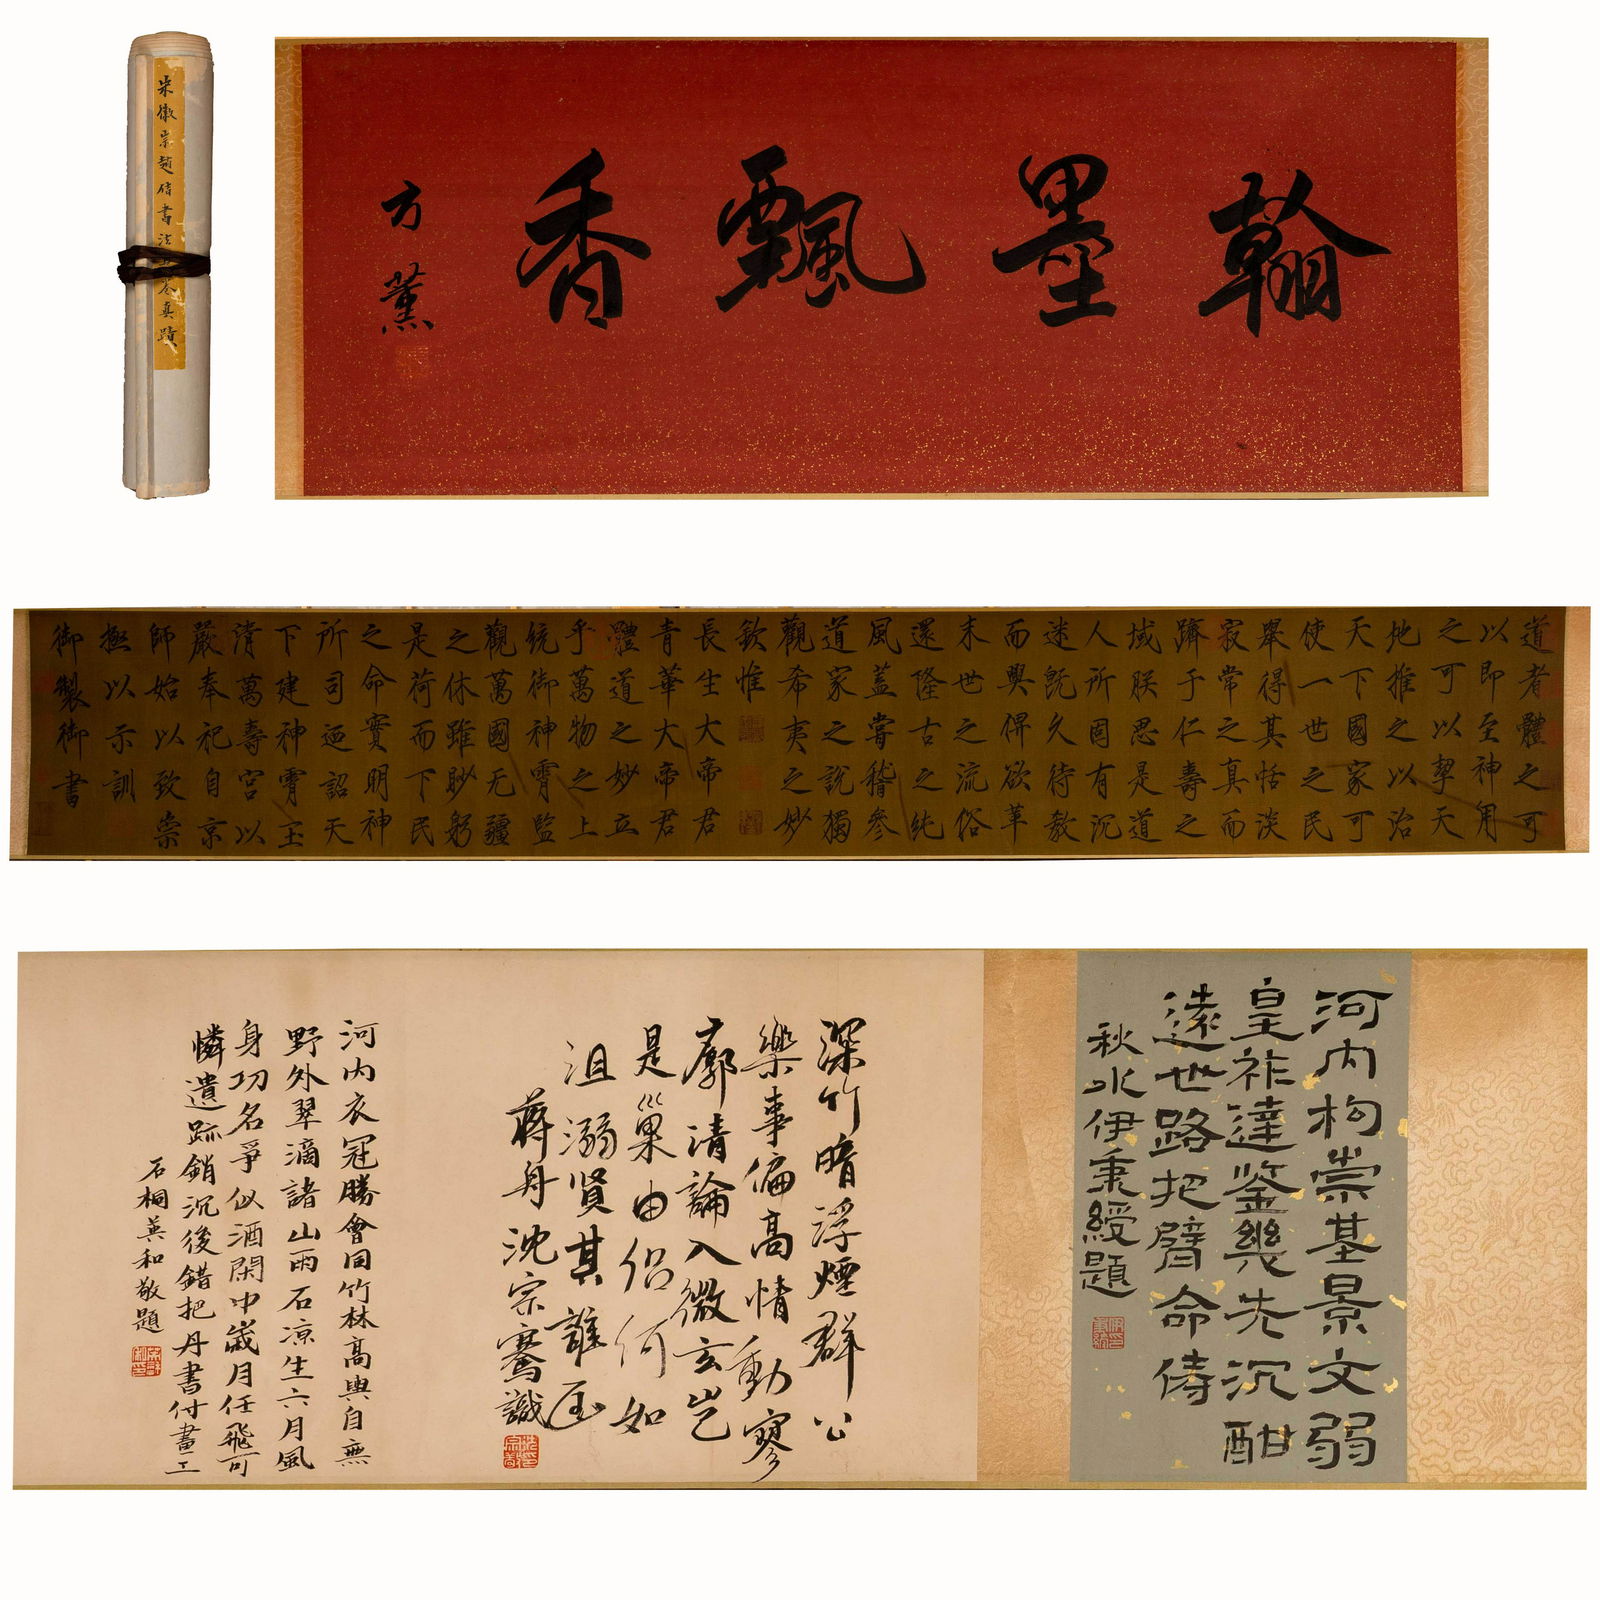 宋徽宗趙佶書法手卷真蹟
翰墨飄香
方薰
道者體之可
以即至神用
之可以挈天
地推之以治
天下國家可
使一世之民
舉得其恬淡
寂常之真而
躋于仁壽之
域朕思是道
人所固有沉
迷既久待教
而興俾欲革
末世之流俗
還隆古之純
風蓋嘗稽參
道家之說獨
觀希夷之妙
欽惟
長生大帝君
青華大帝君
體道之妙立
乎萬物之上
統御神霄監
觀萬國无疆
之休雖眇躬
是荷而下民
之命實明神
所司迺詔天
下建神霄玉
清萬壽宮以
嚴奉祀自京
師始以致崇
極以示訓
御製御書
河內枸崇基景文弱
皇祚達鉴幾先沉酣
遠世路把臂命儔
秋水伊秉綬題
深竹暗浮煙群公
樂事偏高情動寥
廓清論入微玄豈
是巢由侶何如
沮溺賢其誰
蔣舟沈宗騫識
河內衣冠勝會同竹林高與自無
野外翠滴諸山雨石凉生六月風
身功名爭似酒閑中歲月任飛可
憐遺跡銷沉後錯把丹書付畫工
石桐英和敬題